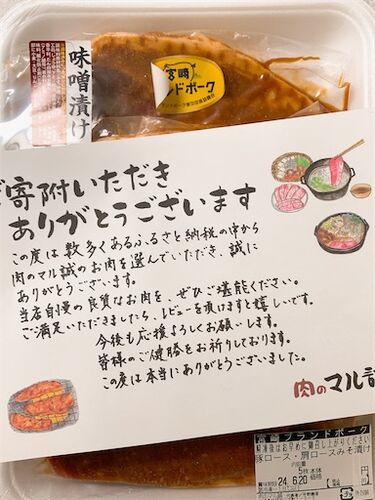 味噌漬け
宮崎
ンドポーク
ご寄附いただき
ありがとうございます
この度は数多くあるふるさと納税の中から
肉のマル誠のお肉を選んでいただき、誠に
ありがとうございます。
当店自慢の良質なお肉を、ぜひご堪能ください。
ご満足いただきましたら、レビューを頂けますと嬉しいです。
今後も応援よろしくお願いします。
皆様のご健勝をお祈りしております。
この度は本当にありがとうございました。
肉のマル誠
宮崎ブランドポーク
解凍後はお早めに御召し上がりください
豚ロース・肩ロースみそ漬け
5枚
24. 6.20
価格
円